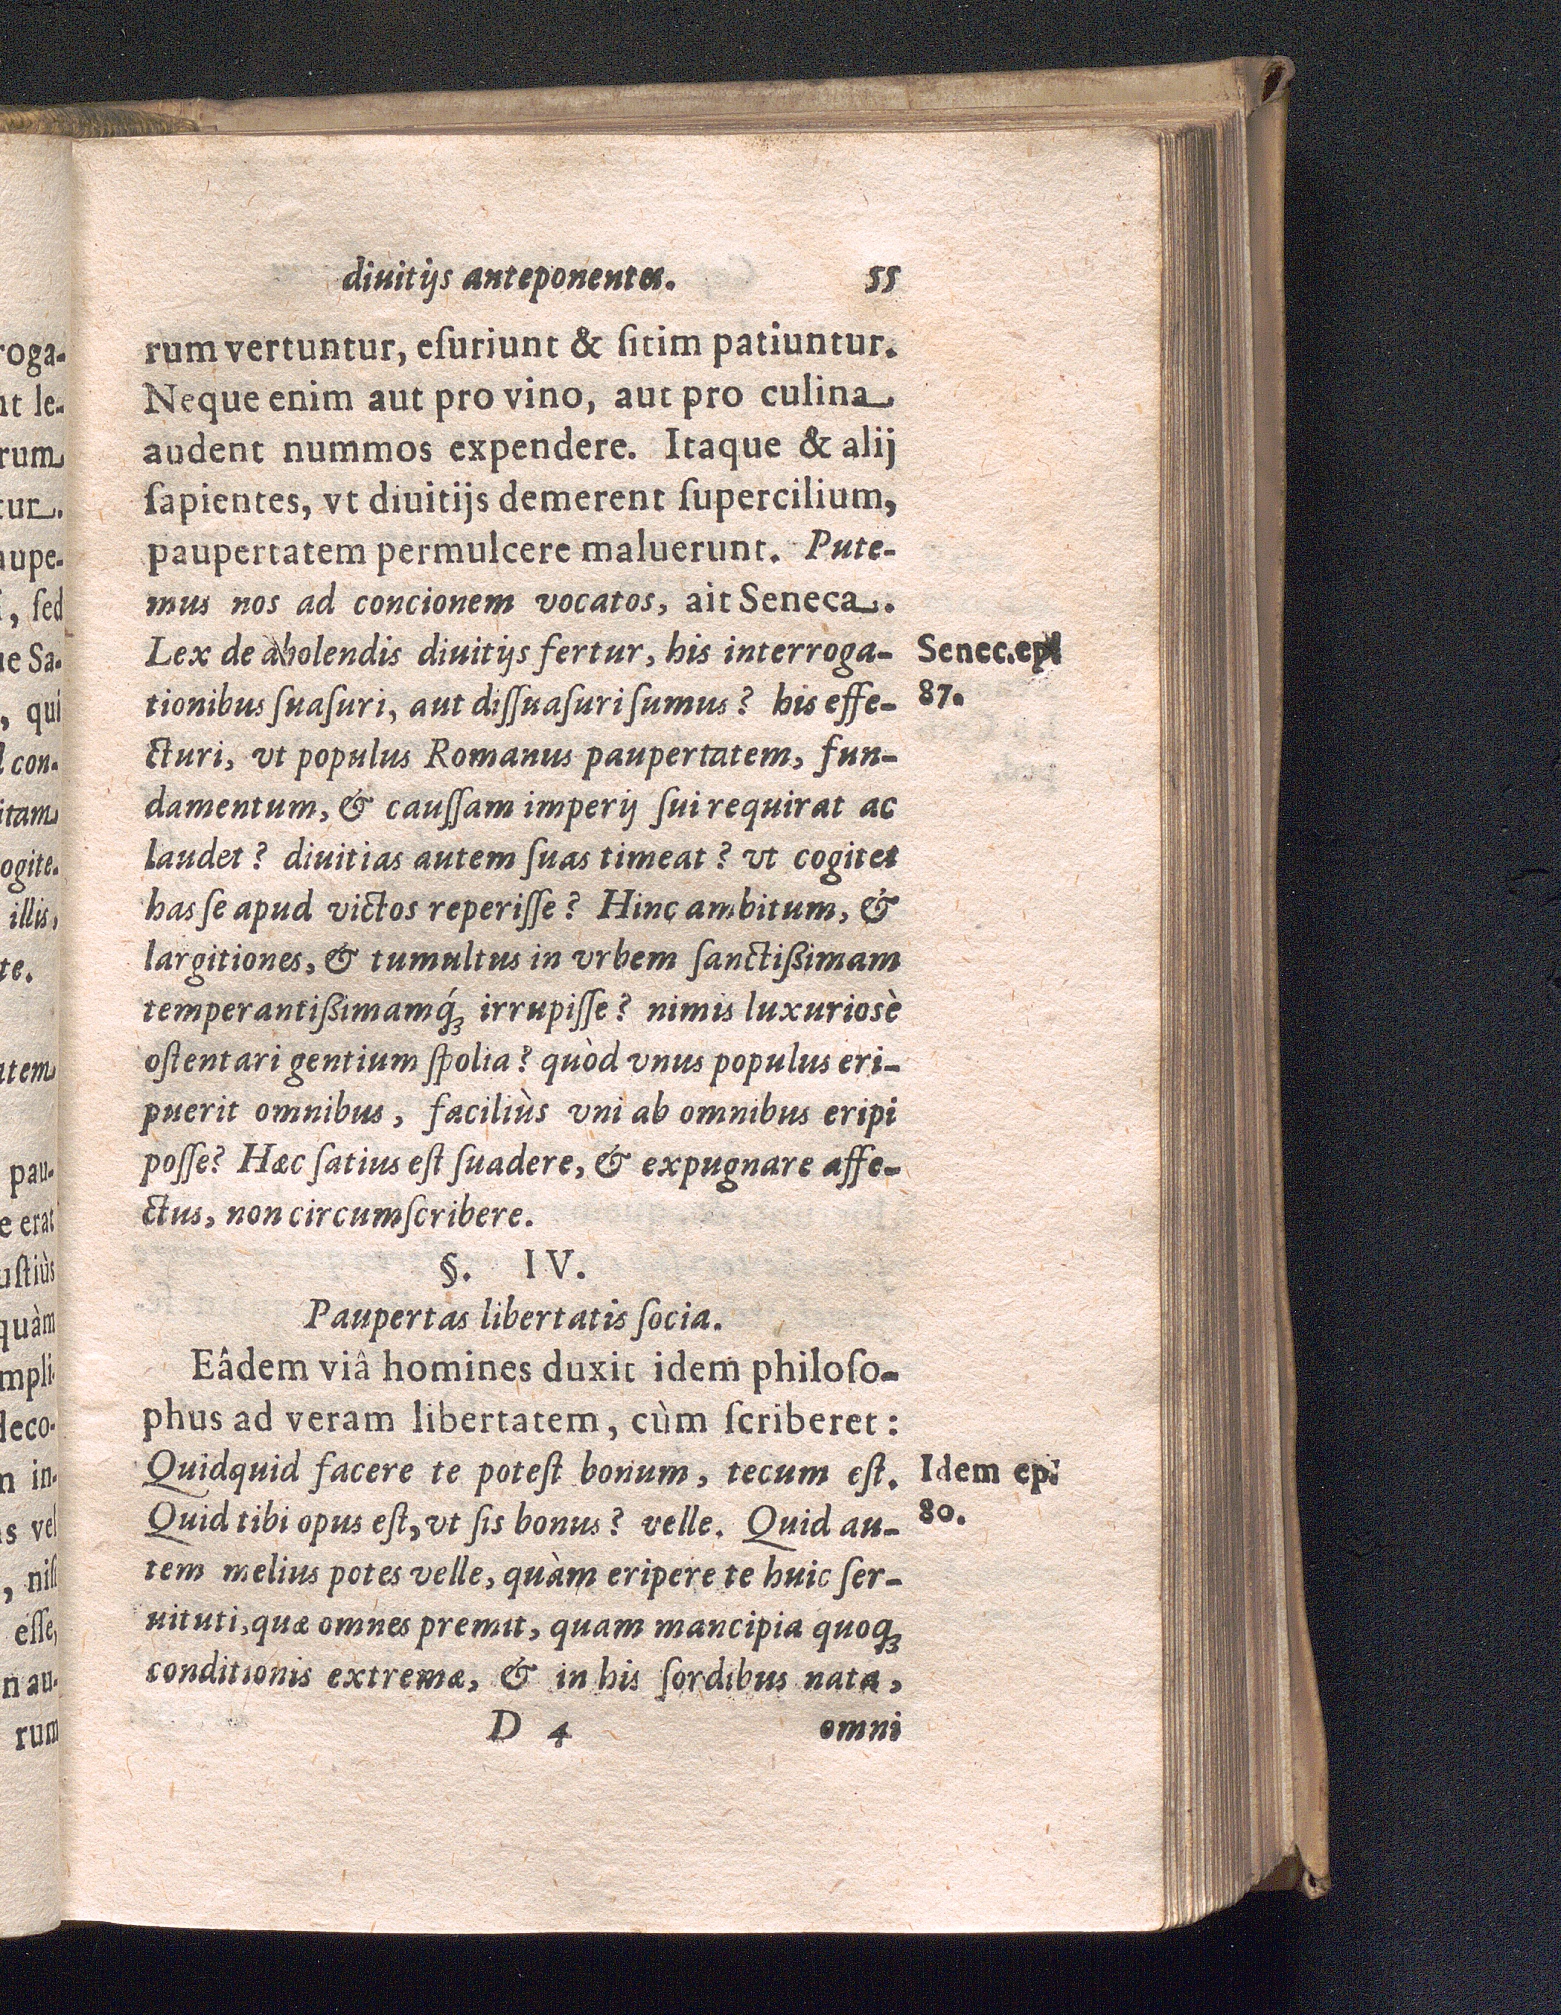 diuitijs anteponentes. 55
rum vertuntur, eſuriunt & ſitim patiuntur.
Neque enim aut pro vino, aut pro culina
audent nummos expendere. Itaque & alij
ſapientes, vt diuitijs demerent ſupercilium,
paupertatem permulcere maluerunt. Pute-
mus nos ad concionem vocatos, ait Seneca.
Lex de abolendis diuitijs fertur, his interroga-
Senec. epl
tionibus ſuaſuri, aut diſſuaſuri ſumus? his effe-
87.
cturi, vt populus Romanus paupertatem, fun-
damentum, & cauſſam imperij ſui requirat ac
laudet? diuitias autem ſuas timeat? vt cogitet
has ſe apud victos reperiſſe? Hinc ambitum, &
largitiones, & tumultus in vrbem ſanctißimam
temperantißimamq́ꝫ irrupiſſe? nimis luxuriosè
oſtentari gentium ſpolia? quòd vnus populus eri-
puerit omnibus, faciliùs vni ab omnibus eripi
poſſe? Hæc ſatius eſt ſuadere, & expugnare affe-
ctus, non circumſcribere.
§. IV.
Paupertas libertatis ſocia.
Eâdem viâ homines duxit idem philoſo-
phus ad veram libertatem, cùm ſcriberet:
Quidquid facere te poteſt bonum, tecum eſt.
Idem ep.
Quid tibi opus eſt, vt ſis bonus? velle. Quid au-
80.
tem melius potes velle, quàm eripere te huic ſer-
uituti, quæ omnes premit, quam mancipia quoqꝫ
conditionis extremæ, & in his ſordibus nata,
D 4 omni
roga-
nt le-
rum
tur.
aupe-
, ſed
ue Sa-
, qui
d con-
itam
ogite.
illis,
te.
atem
pau-
e erat
uſtiùs
quàm
mpli-
deco-
m in-
s vel
, niſi
eſſe,
n au-
rum